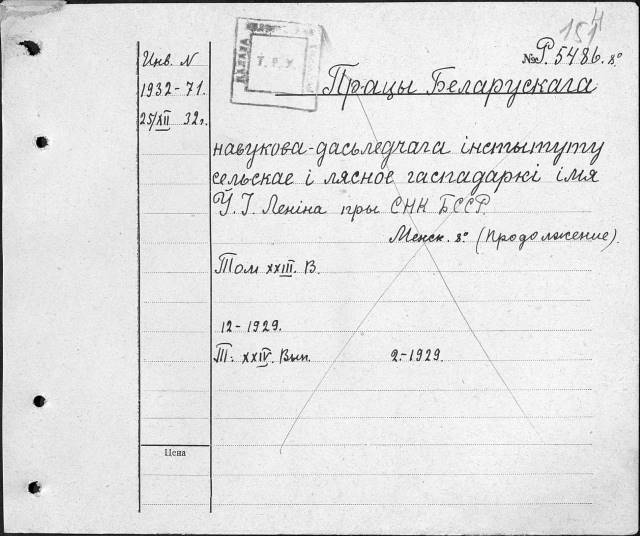 151
Инв. N
№ Р.5486. 8º
8º
Т. Р. У.
1932-71.
25/XII 32г.
Працы Беларускага
навукова-дасьледчага інстытуту
сельскае і лясное гаспадаркі імя
Ў. І. Леніна пры СНК БССР.
Менск. 8º (Продолжение).
Том XXIII. В.
12-1929.
Т. XXIV. Вып. 2.-1929.
Цена